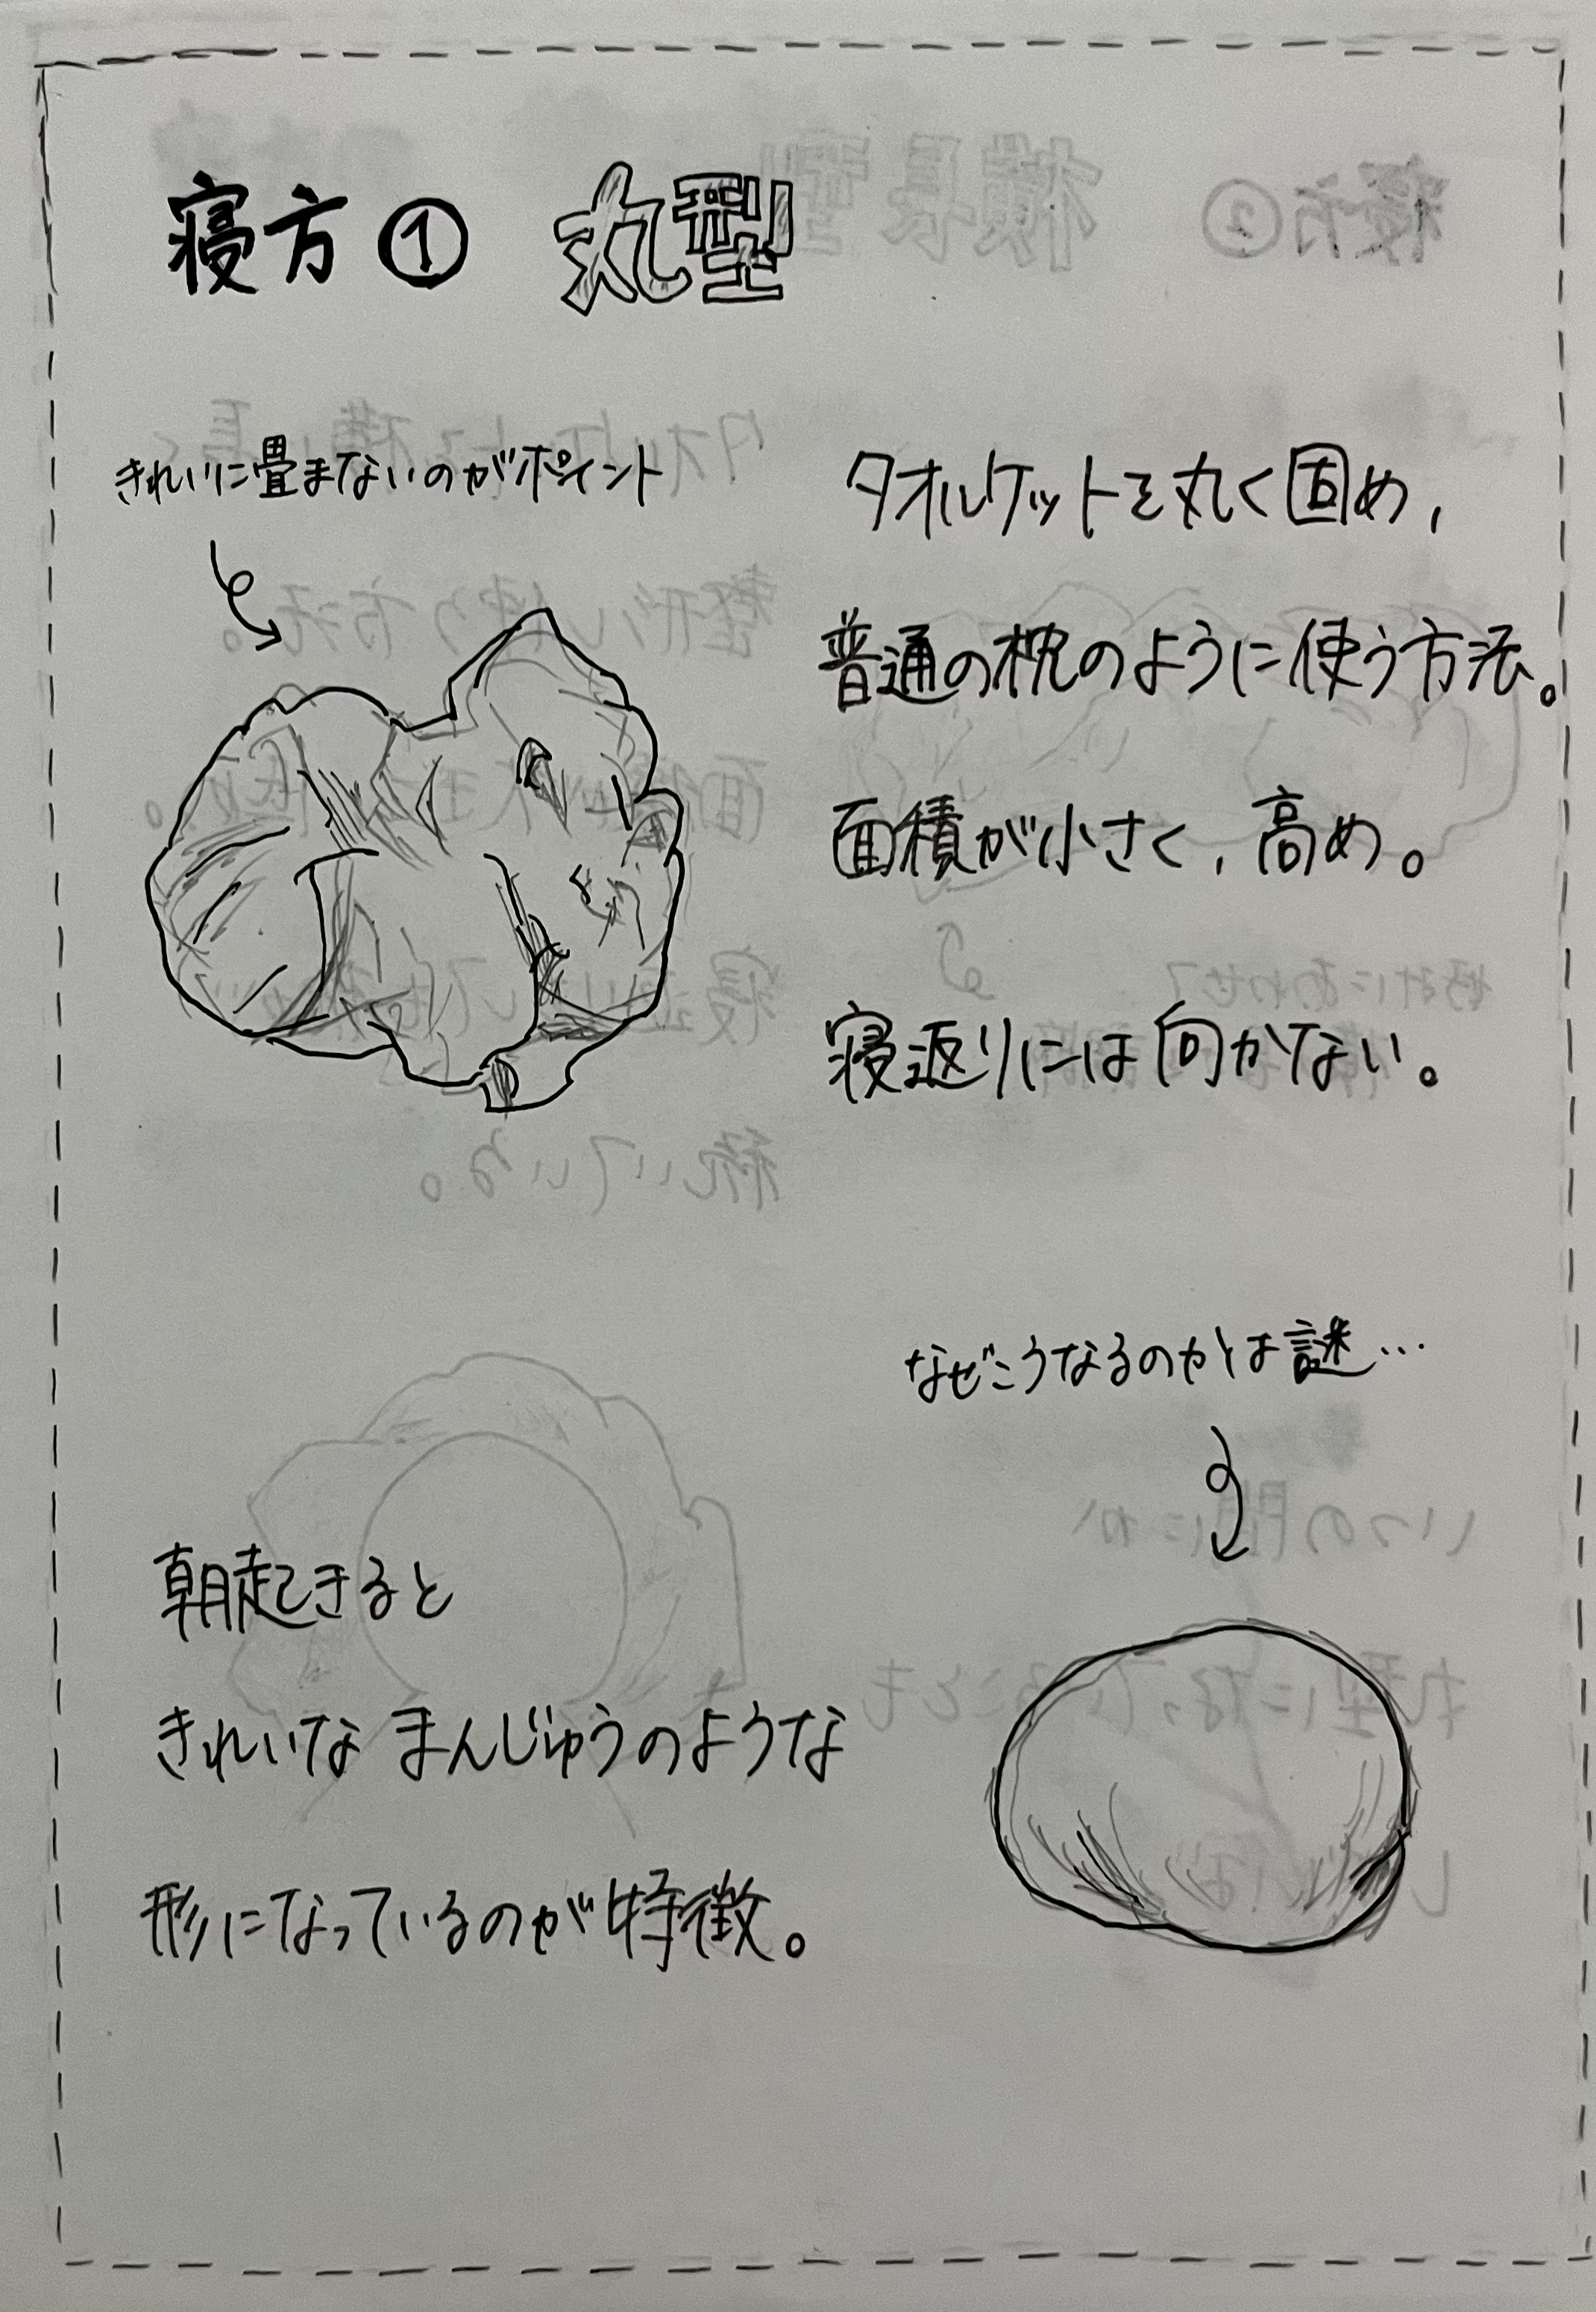 寝方① 丸型
きれいに畳まないのがポイント
タオルケットを丸く固め,
普通の枕のように使う方法。
面積が小さく,高め。
寝返りには向かない。
なぜこうなるのかは謎…
朝起きると
きれいな まんじゅうのような
形になっているのが特徴。